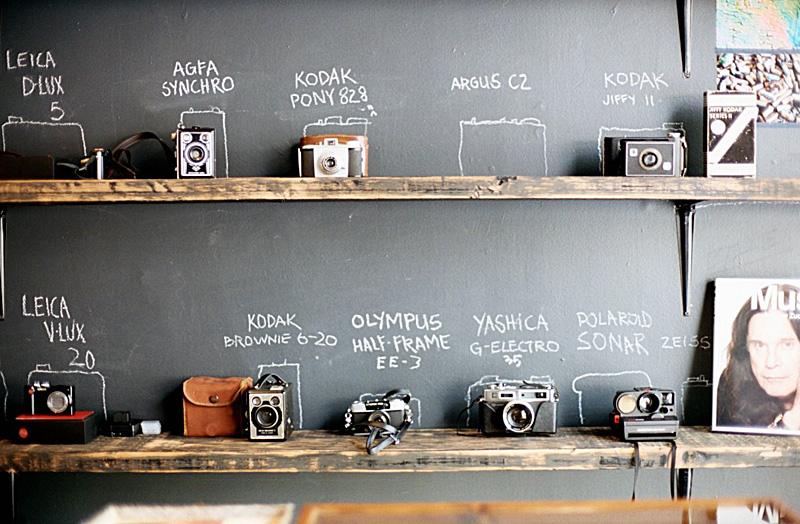 LEICA
D-LUX
5
AGFA
SYNCHRO
KODAK
PONY 828
ARGUS C2
KODAK
JIFFY II
JIFFY KODAK
SERIES II
LEICA
V-LUX
20
KODAK
BROWNIE 6-20
OLYMPUS
HALF-FRAME
EE-3
YASHICA
G-ELECTRO
35
POLAROID
SONAR
ZEISS
Mu